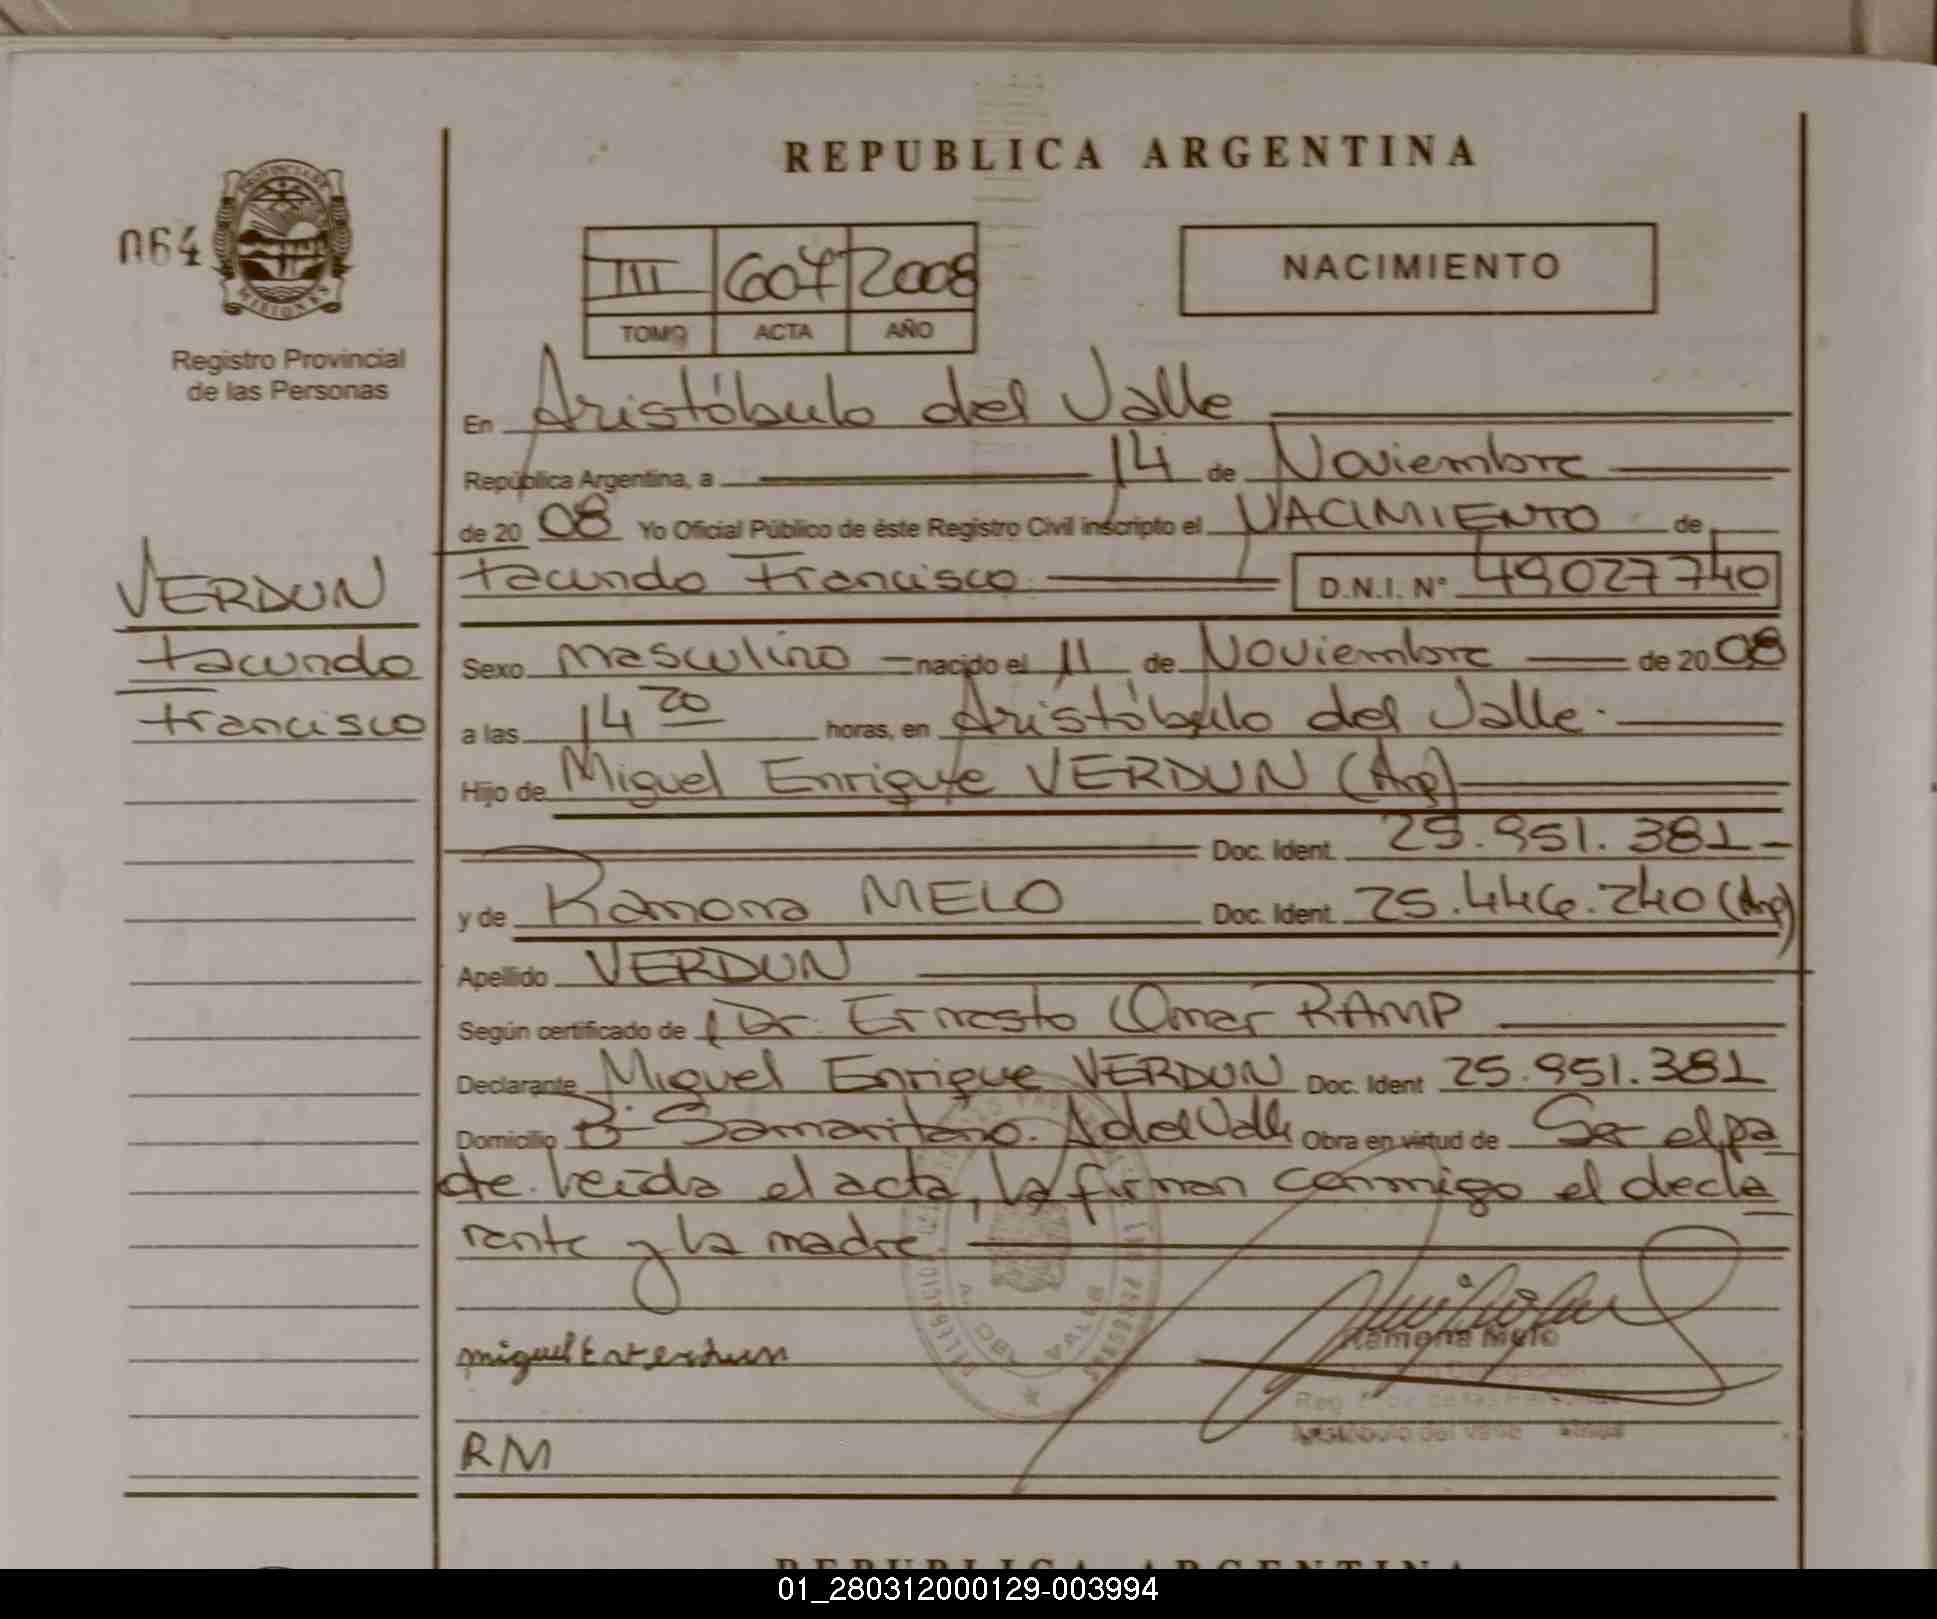 REPUBLICA ARGENTINA
064
PROVINCIA DE
MISIONES
Registro Provincial
de las Personas
III 607 2008
TOMO ACTA AÑO
NACIMIENTO
En Aristóbulo del Valle
República Argentina, a 14 de Noviembre
de 20 08 Yo Oficial Público de éste Registro Civil inscripto el NACIMIENTO de
Facundo Francisco. D.N.I. N° 49027740
VERDUN
Facundo
Francisco
Sexo masculino nacido el 11 de Noviembre de 20 08
a las 14 20 horas, en Aristóbulo del Valle.
Hijo de Miguel Enrique VERDUN (Arg)
Doc. Ident. 25.951.381
y de Ramona MELO Doc. Ident. 25.446.240 (Arg)
Apellido VERDUN
Según certificado de Dr. Ernesto Omar RAMP
Declarante Miguel Enrique VERDUN Doc. Ident 25.951.381
Domicilio B- Samaritano. A del Valle Obra en virtud de Ser el pa
de. Leída el acta, la firman conmigo el decla
rante y la madre
miguel E verdun
RM
REPUBLICA ARGENTINA
01_280312000129-003994